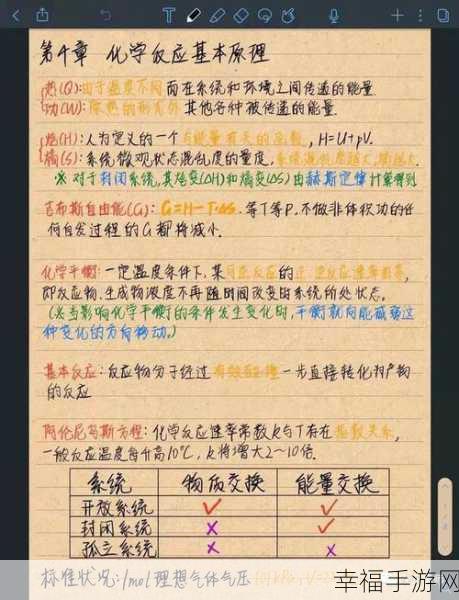 第4章 化学反应基本原理
热(Q):由于温度不同而在系统和环境之间传递的能量
功(W):除热的形式外其他各种被传递的能量.
焓(H):人为定义的一个与能量有关的函数,H=U+pV.
熵(S):系统微观状态混乱度的量度,系统混乱度越大,熵越大.
※对于封闭系统,其焓变(ΔH)和熵变(ΔS)由赫斯定律计算得到
吉布斯自由能(G):G=H-T·ΔS.等T等P,不做非体积功的任
何自发过程的G都将减小.
化学平衡:一定温度条件下,某可逆反应的正逆反应速率相等,
即反应物、生成物浓度不再随时间改变时系统所处状态。
(※当影响化学平衡的条件发生变化时,平衡就向能减弱这
种变化的方向移动。)
基本反应:反应物分子经过有效碰撞一步直接转化为产物
的反应
阿伦尼乌斯方程:化学反应速率常数k与T存在指数关系,
一般反应温度每升高10℃,k将增大2~10倍.
系统 物质交换 能量交换
开放系统 ✓ ✓
封闭系统 × ✓
孤立系统 × ×
标准状况:1mol理想气体气压
幸福手游网